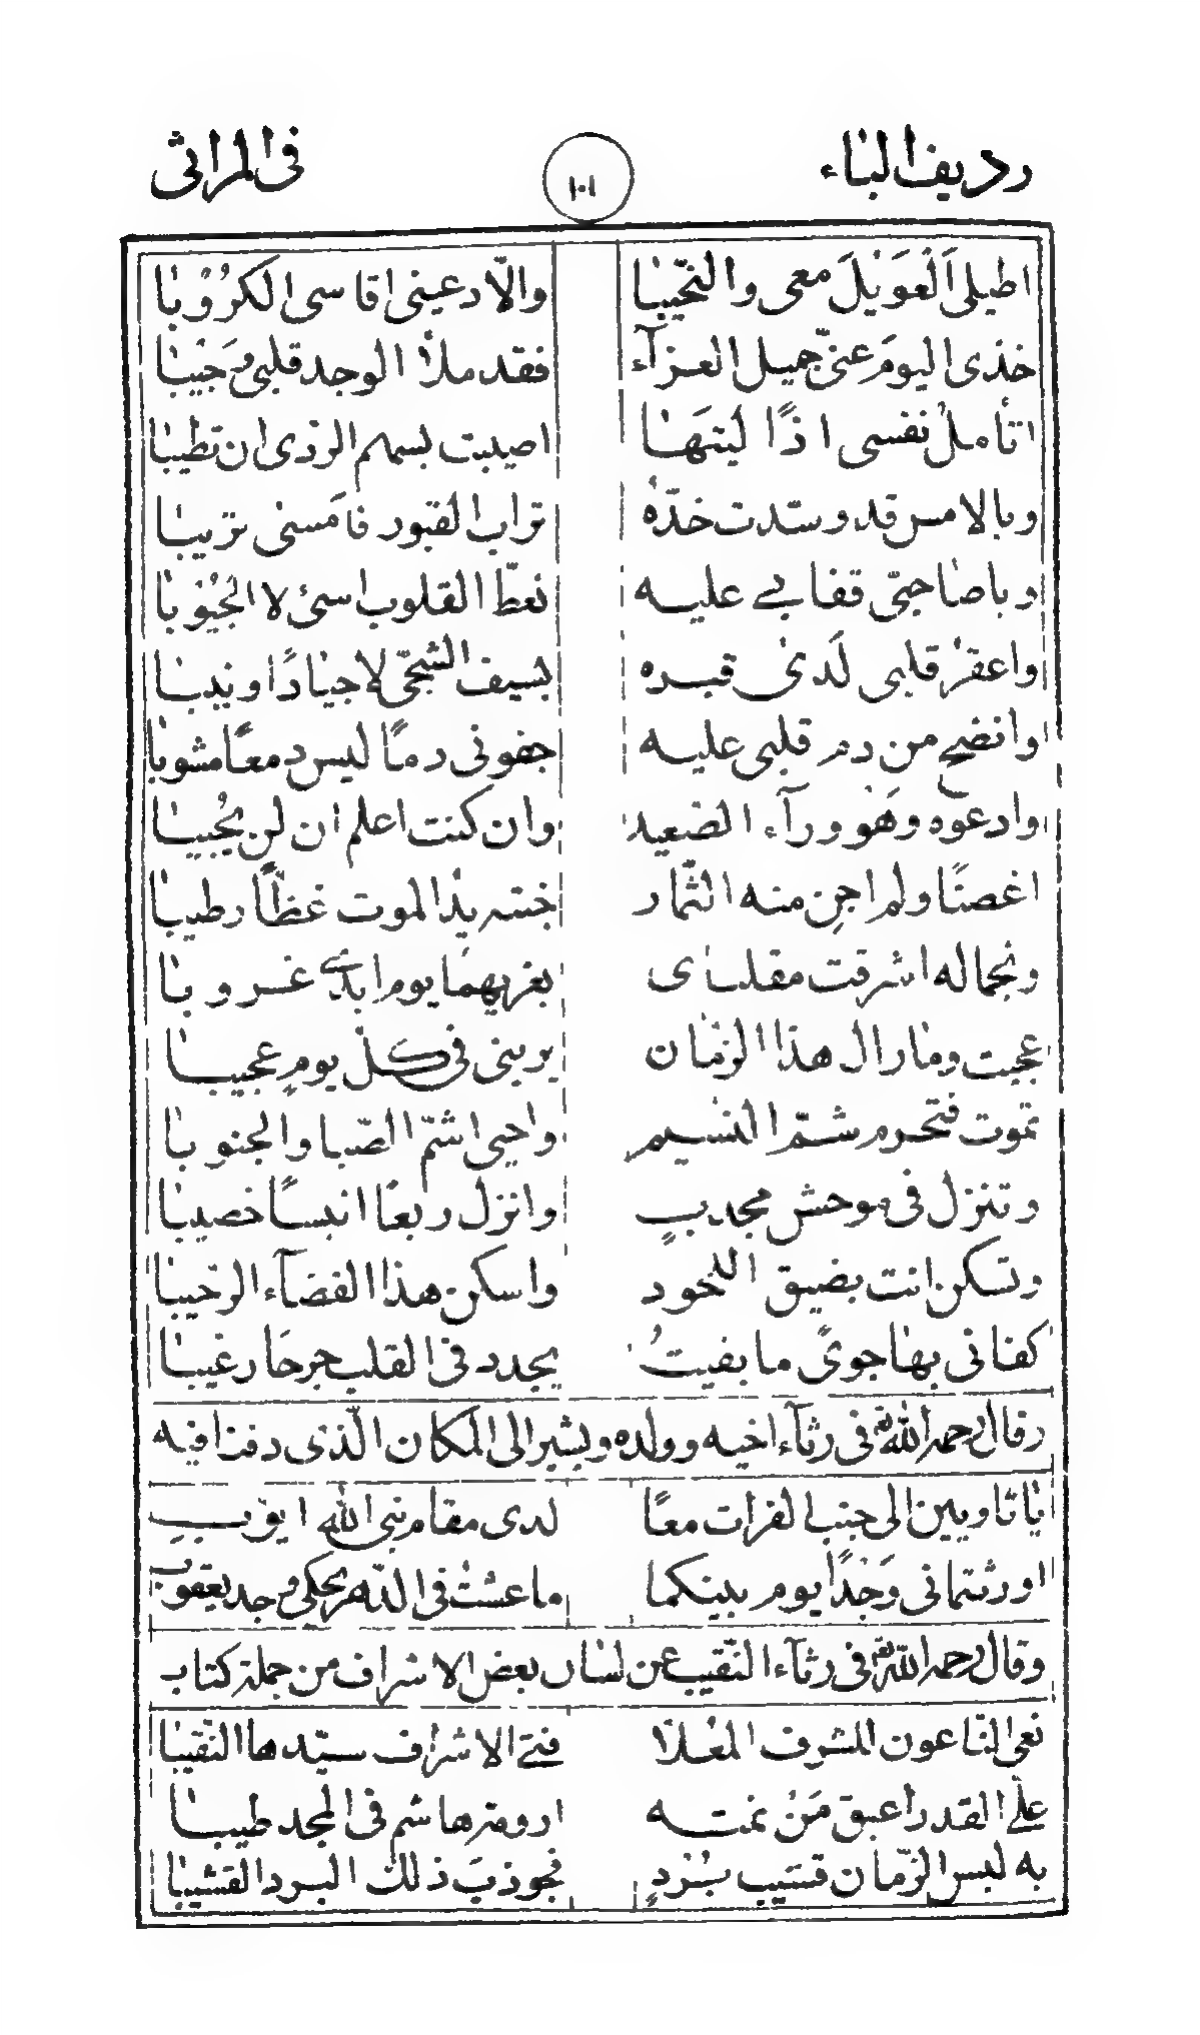 رديف الباء ١٠١ فى المراثى
اطيلى اَلْعَوَيْلَ معى والنّحيبا والّا دعينى اقاسى الكرُوُبا
خذى اليومَ عنّى جميل العزآء فقد ملأ الوجد قلبى وَجَيْبا
اتأمل نفسى اذًا لبثهَا اصيبت بسهم الردى ان تطيبا
وبالامس قد وسّدت خدّهُ تراب القبور فامَسى تريبا
وياصاحبّى قفا بي عليه نعطّ القلوب اسىً لا الجُيُوبا
واعقرْ قلبى لَدى قبره بسيف الشجّى لا جيادًا ونيبا
وانضح من دم قلبى عليه جفونى دمًا ليس دمعًا مشوبا
وادعوه وَهْو ورآء الصّعيد وان كنت اعلم ان لن يُجيبا
اغصنًا ولم اجنِ منه الثّمار جنته يدُ الموت غظًّا رطيبا
ونجماله اشرقت مقلتاى بغربهما يوم ابدى غروبا
عجبت ومازال هذا الزمان يرينى فى كلّ يومٍ عجيبا
تموت فتحرم شمّ النسيم واحيى اشمّ الصّبا والجنوبا
وتنزل فى موحش مجدبٍ وانزل ربعًا انيسًا خصيبا
وتسكن انت بضيق اللّحود واسكن هذا الفضآء الرحيبا
كفانى بها جوىً ما بقيتُ يجدد فى القلب جرحًا رغيبا
وقال رحمه اللّه فى رثآء اخيه وولده ويشير الى المكان الّذى دفنا فيه
ياثاويين الى جنب الفرات معًا لدى مقام نبى اللّه ايوّبِ
اورثتمانى وَجْدًا يوم بينكما ماعشتُ فى الدّهر يحكى وجد يعقوبِ
وقال رحمه اللّه فى رثآء النّقيب عن لسان بعض الاشراف من جملة كتاب
نعى النّاعون للشرف المُعْلاّ فتى الاشراف سيّدها النّقيبا
علىّ القدر اعبق مَنْ نمته ارومة هاشم فى المجد طيبا
به لبس الزّمان قشيب بُرْدٍ فجوذبَ ذلك البرد القشيبا